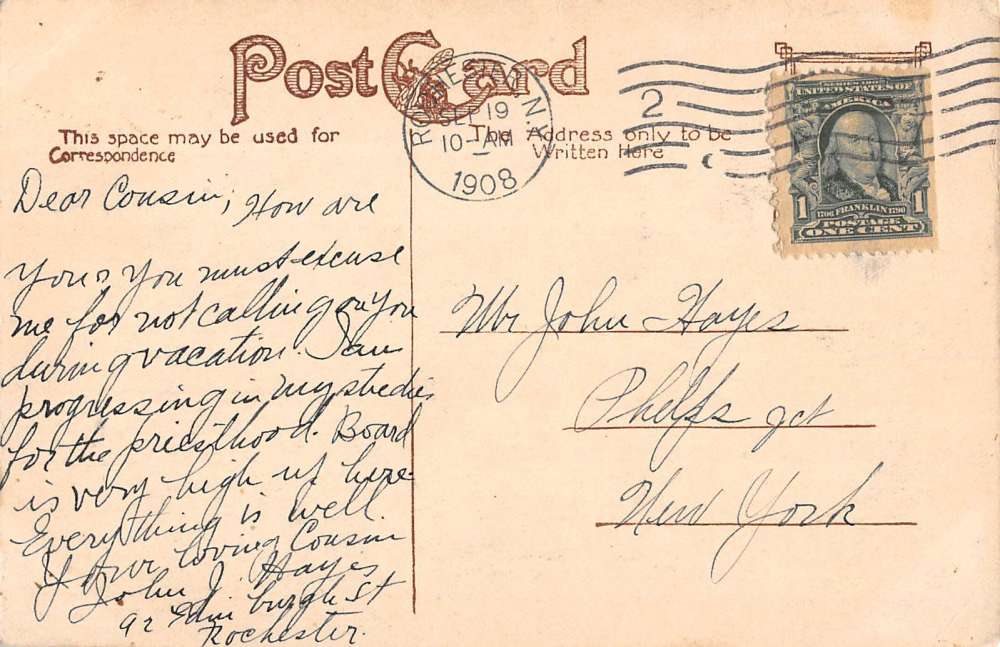 Post Card
This space may be used for
Correspondence
The Address only to be
Written Here
ROCHESTER, N.Y.
SEP 19
10-AM
1908
2
UNITED STATES OF
AMERICA
1 1706 FRANKLIN 1790 1
POSTAGE
ONE CENT
Dear Cousin; How are
you? You must excuse
me for not calling on you
during vacation. I am
progressing in my studies
for the priesthood. Board
is very high up here.
Everything is well.
Your loving Cousin
John J. Hayes
92 Edinburgh St
Rochester.
Mr John Hayes
Phelps Jct
New York